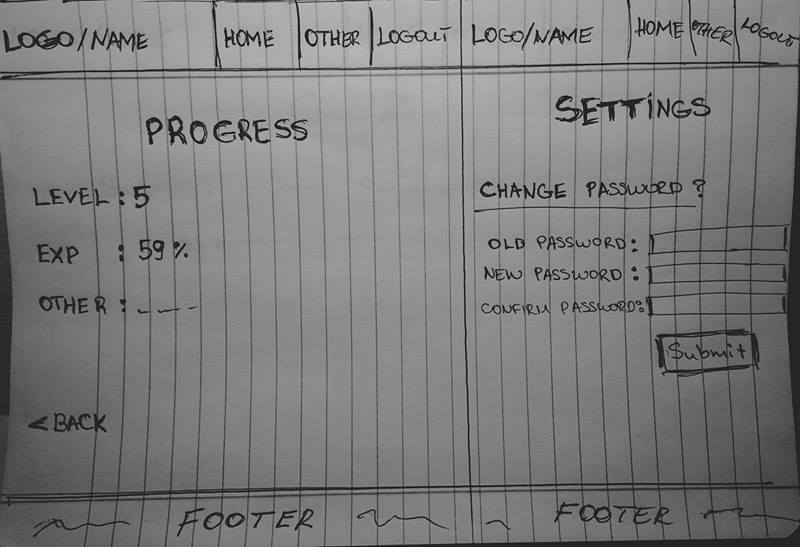 LOGO/NAME HOME OTHER LOGOUT
PROGRESS
LEVEL : 5
EXP : 59%
OTHER : _ _ _ _
< BACK
FOOTER
LOGO/NAME HOME OTHER LOGOUT
SETTINGS
CHANGE PASSWORD ?
OLD PASSWORD:
NEW PASSWORD :
CONFIRM PASSWORD:
Submit
FOOTER